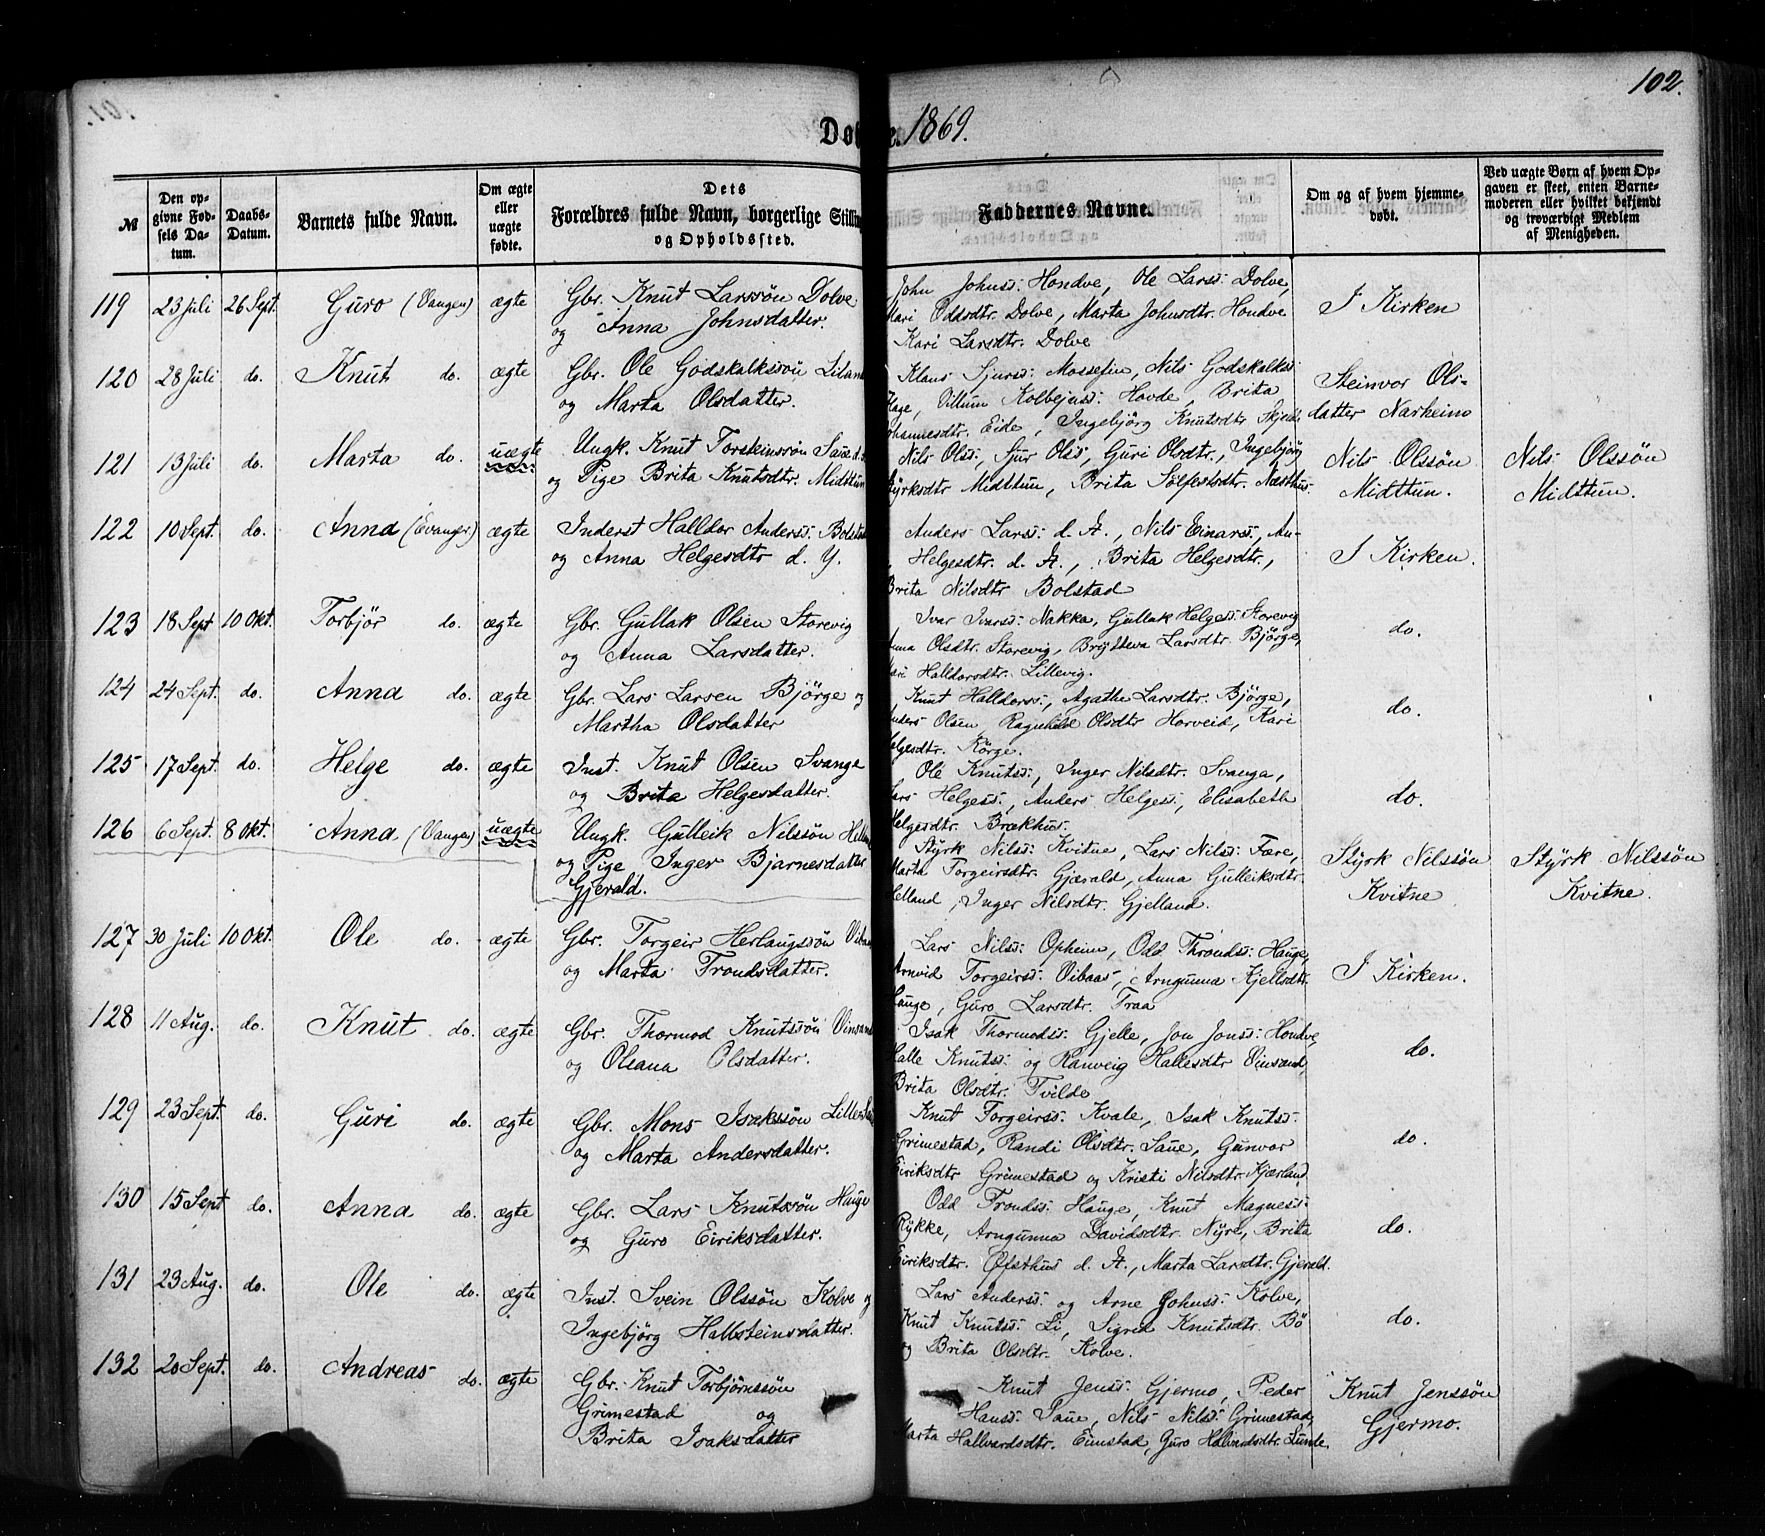 102.
Døbte. 1869.
№
Den opgivne Fødsels Datum.
Daabs-Datum.
Barnets fulde Navn.
Om ægte eller uægte fødte.
Dets Forældres fulde Navn, borgerlige Stilling og Opholdssted.
Faddernes Navne.
Om og af hvem hjemmedøbt.
Ved uægte Børn af hvem Opgaven er skeet, enten Barnemoderen eller hvilket bekjendt og troværdigt Medlem af Menigheden.
119 23 Juli 26 Sept. Guro (Vangen) ægte
Gbr. Knut Larssøn Dolve
og Anna Johnsdatter.
John Johnss: Hondve, Ole Larss: Dolve,
Mari Oddsdtr. Dolve, Marta Johnsdtr. Hondve
Kari Larsdtr. Dolve
I Kirken
120 28 Juli do. Knut do. ægte
Gbr. Ole Godskalkssøn
og Marta Olsdatter.
Klaus Sjurss: Mossefin, Nils Godskalkss:
Hage, Villum Kolbejnss: Hovde, Brita
Johannesdtr. Eide, Ingebjörg Knutsdtr
Steinvor Ols-
datter Narheim
121 13 Juli do. Marta do. uægte
Ungk. Knut Torsteinssøn Saue
og Pige Brita Knutsdtr. Midttun
Nils Olss:, Sjur Olss, Guri Olsdtr., Ingebjörg
Styrksdtr Midttun, Brita Sölfestsdtr. Næsthus.
Nils Olssøn
Midttun.
Nils Olssøn
Midttun.
122 10 Sept. do. Anna (Evanger.) ægte
Inderst Halldor Anderss: Bolstad
og Anna Helgesdtr d. Y.
Anders Larss: d. Æ., Nils Einarss, An-
Helgesdtr. d. Æ., Brita Helgesdtr.,
Brita Nilsdtr Bolstad
I Kirken.
123 18 Sept 10 Okt. Torbjør do. ægte
Gbr. Gullak Olsen Storevig
og Anna Larsdatter.
Ivar Ivarss: Nakka, Gullak Helgess: Storevig
Anna Olsdtr. Storevig, Bryteva Larsdtr. Bjørge,
Kari Halldorsdtr. Lillevig.
do.
124 24 Sept. do. Anna do. ægte
Gbr. Lars Larsen Bjørge og
Martha Olsdatter
Knut Halldorss:, Agathe Larsdtr. Bjørge,
Anders Olsen, Ragnhilde Olsdtr Horveid, Kari
Helgesdtr. Rörge.
do.
125 17 Sept. do. Helge do. ægte
Inst. Knut Olsen Svange
og Brita Helgesdatter.
Ole Knutss:, Inger Nilsdtr. Svanga,
Lars Helgess:, Anders Helgess:, Elisabeth
Helgesdtr. Brækhus.
do.
126 6 Sept. 8 Okt. Anna (Vangen) uægte
Ungk. Gulleik Nilssøn Helland
og Pige Inger Bjarnesdatter
Gjerald.
Styrk Nilss: Kvitne, Lars Nilss: Fære,
Marta Torgeirsdtr. Gjærald, Anna Gulleiksdtr.
Helland, Inger Nilsdtr. Gjelland.
Styrk Nilssøn
Kvitne
Styrk Nilssøn
Kvitne.
127 30 Juli 10 Okt. Ole do. ægte
Gbr. Torgeir Herlaugssøn Vibaas
og Marta Trondsdatter.
Lars Nilss: Opheim, Odd Throndss: Hauge,
Arnvid Torgeirss: Vibaas, Arngunna Kjellsdtr.
Hauge, Guro Larsdtr. Traa
I Kirken.
128 11 Aug. do. Knut do. ægte
Gbr. Thormod Knutssøn Vinsand
og Oleana Olsdatter.
Isak Thormodss: Gjelle, Jon Jonss: Hondve,
Halle Knutss: og Ranveig Hallesdtr Vinsand,
Brita Olsdtr. Tvilde
do.
129 23 Sept. do. Guri do. ægte
Gbr. Mons Isakssøn
og Marta Andersdatter.
Knut Torgeirss: Kvale, Isak Knutss:
Grimestad, Randi Olsdtr. Saue, Gunvor
Eiriksdtr Grimestad og Kristi Nilsdtr. Kjærland
do.
130 15 Sept do. Anna do. ægte
Gbr. Lars Knutssøn Hauge
og Guro Eiriksdatter.
Odd Trondss: Hauge, Knut Magness:
Rykke, Arngunna Davidsdtr. Nyre, Brita
Eiriksdtr. Øfsthus d. Æ., Marta Larsdtr. Gjerald.
do.
131 23 Aug. do. Ole do. ægte
Inst. Svein Olssøn Kolve og
Ingebjörg Hallsteinsdatter.
Lars Anderss: og Arne Johnss: Kolve,
Knut Knutss: Li, Sigrid Knutsdtr. Bö
og Brita Olsdtr. Kolve.
do.
132 20 Sept. do. Andreas do. ægte
Gbr. Knut Torbjørnssøn
Grimestad og
Brita Isaksdatter
Knut Jenss: Gjermo, Peder
Hanss: Saue, Nils Nilss: Grimestad,
Marta Hallvardsdtr. Eimstad, Guro Halvardsdtr. Lunde.
Knut Jenssøn
Gjermo.